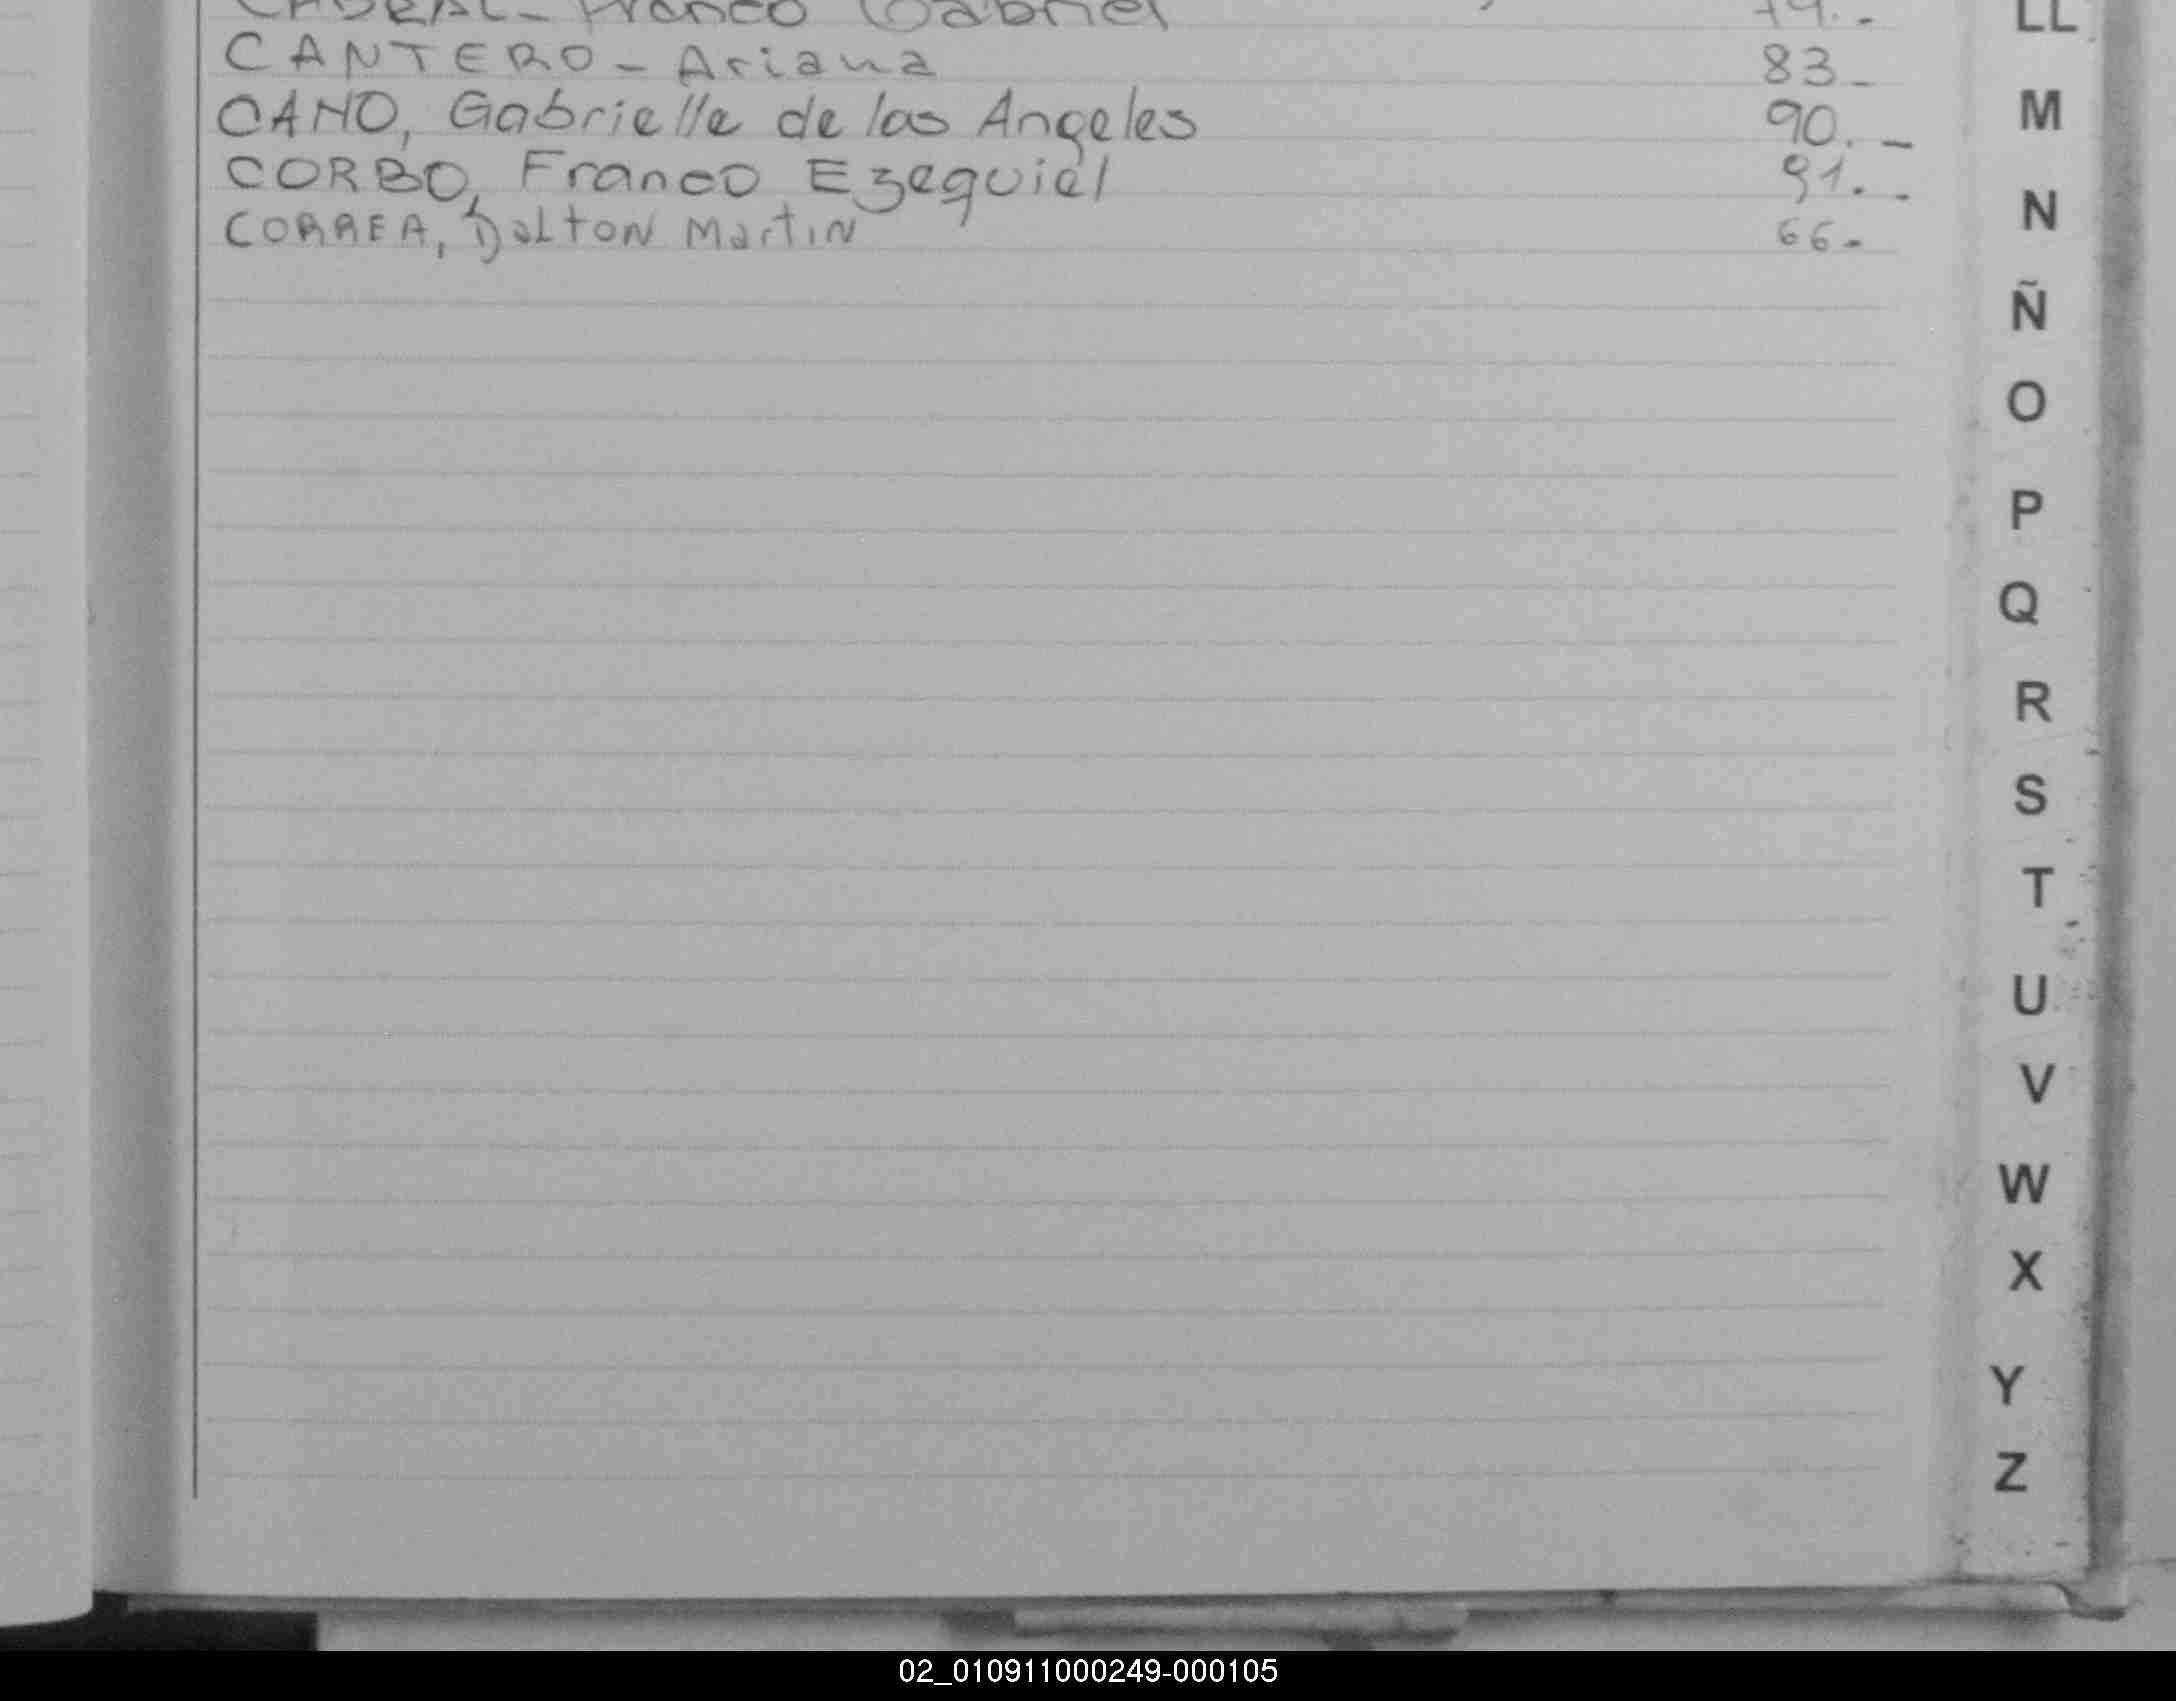 CABRAL - Franco Gabriel 74.-
CANTERO - Ariana 83-
CANO, Gabrielle de los Angeles 90.-
CORBO, Franco Ezequiel 91.-
CORREA, Dalton Martin 66-
LL
M
N
Ñ
O
P
Q
R
S
T
U
V
W
X
Y
Z
02_010911000249-000105